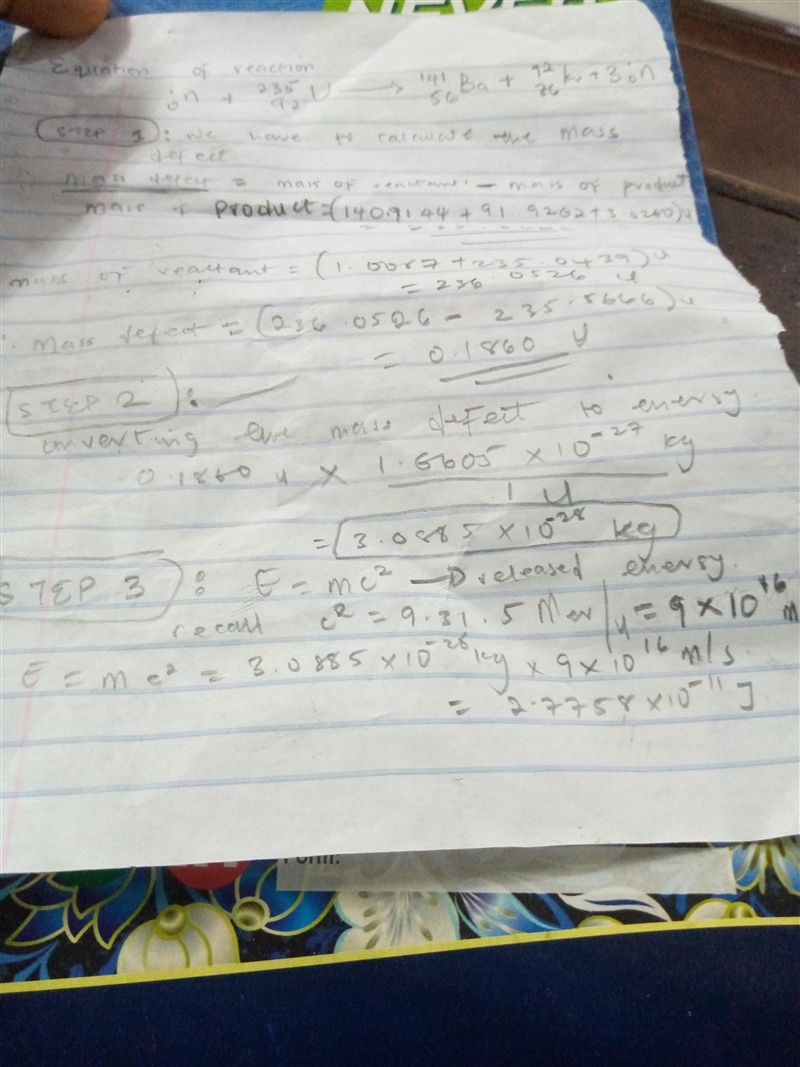 NEVER
Equation of reaction
¹₀n + ²³⁵₉₂U → ¹⁴¹₅₆Ba + ⁹²₃₆Kr + 3¹₀n
STEP 1 : We have to calculate the mass
defect
Mass defect = mass of reactant - mass of product
mass of product = (140.9144 + 91.9262 + 3.0260)u
mass of reactant = (1.0087 + 235.0439)u
= 236.0526 u
∴ Mass defect = (236.0526 - 235.8666)u
= 0.1860 u
STEP 2 :
converting the mass defect to energy.
0.1860 u × 1.6605 × 10⁻²⁷ kg
1 u
= 3.0885 × 10⁻²⁸ kg
STEP 3 : E = mc² → released energy.
recall c² = 9.31.5 Mev/u = 9 × 10¹⁶ m
E = mc² = 3.0885 × 10⁻²⁸ kg × 9 × 10¹⁶ m/s
= 2.7758 × 10⁻¹¹ J
Form: